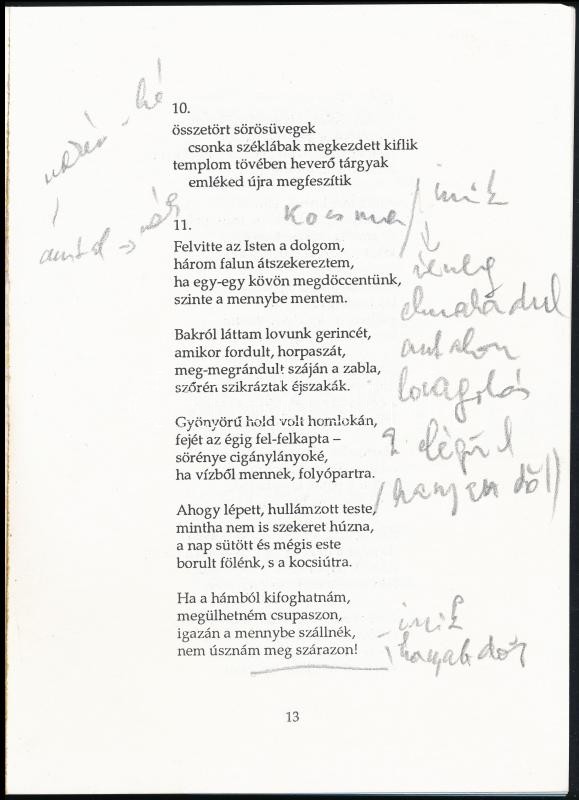 10.
összetört sörösüvegek
csonka széklábak megkezdett kiflik
templom tövében heverő tárgyak
emléked újra megfeszítik
kocsma / iszik
11.
Felvitte az Isten a dolgom,
három falun átszekereztem,
ha egy-egy kövön megdöccentünk,
szinte a mennybe mentem.
Bakról láttam lovunk gerincét,
amikor fordult, horpaszát,
meg-megrándult száján a zabla,
szőrén szikráztak éjszakák.
Gyönyörű hold volt homlokán,
fejét az égig fel-felkapta –
sörénye cigánylányoké,
ha vízből mennek, folyópartra.
Ahogy lépett, hullámzott teste,
mintha nem is szekeret húzna,
a nap sütött és mégis este
borult fölénk, s a kocsiútra.
Ha a hámból kifoghatnám,
megülhetném csupaszon,
igazán a mennybe szállnék,
nem úsznám meg szárazon!
részeg
elmaradul
asztalon
lovaglás
iszik
13